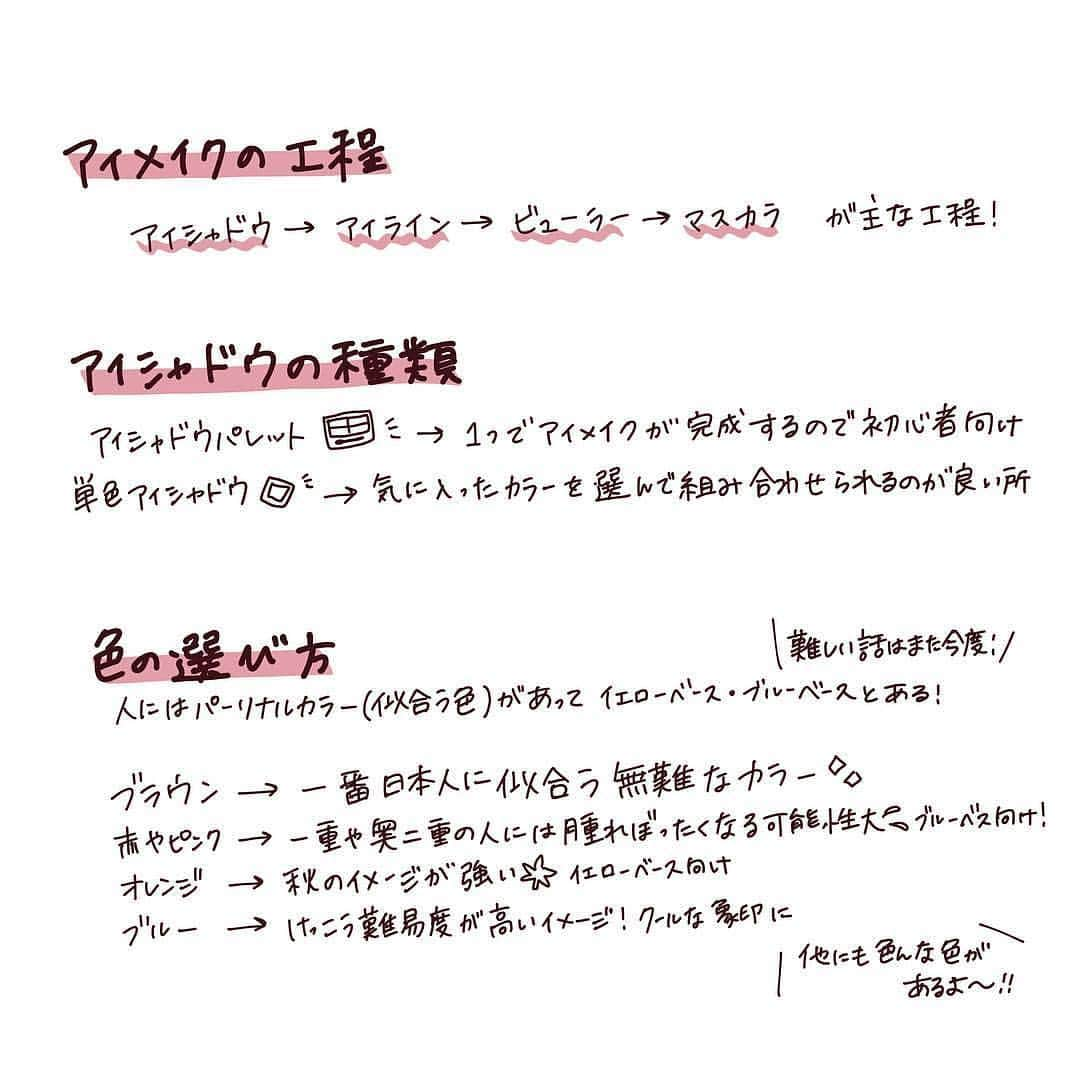 アイメイクの工程
アイシャドウ→アイライン→ビューラー→マスカラ が主な工程!
アイシャドウの種類
アイシャドウパレット → 1つでアイメイクが完成するので初心者向け
単色アイシャドウ → 気に入ったカラーを選んで組み合わせられるのが良い所
色の選び方
難しい話はまた今度!
人にはパーソナルカラー(似合う色)があって イエローベース・ブルーベースとある!
ブラウン → 一番日本人に似合う無難なカラー
赤やピンク → 一重や奥二重の人には腫れぼったくなる可能性大 ブルーベース向け!
オレンジ → 秋のイメージが強い イエローベース向け
ブルー → けっこう難易度が高いイメージ! クールな象印に
他にも色んな色が
あるよ〜!!